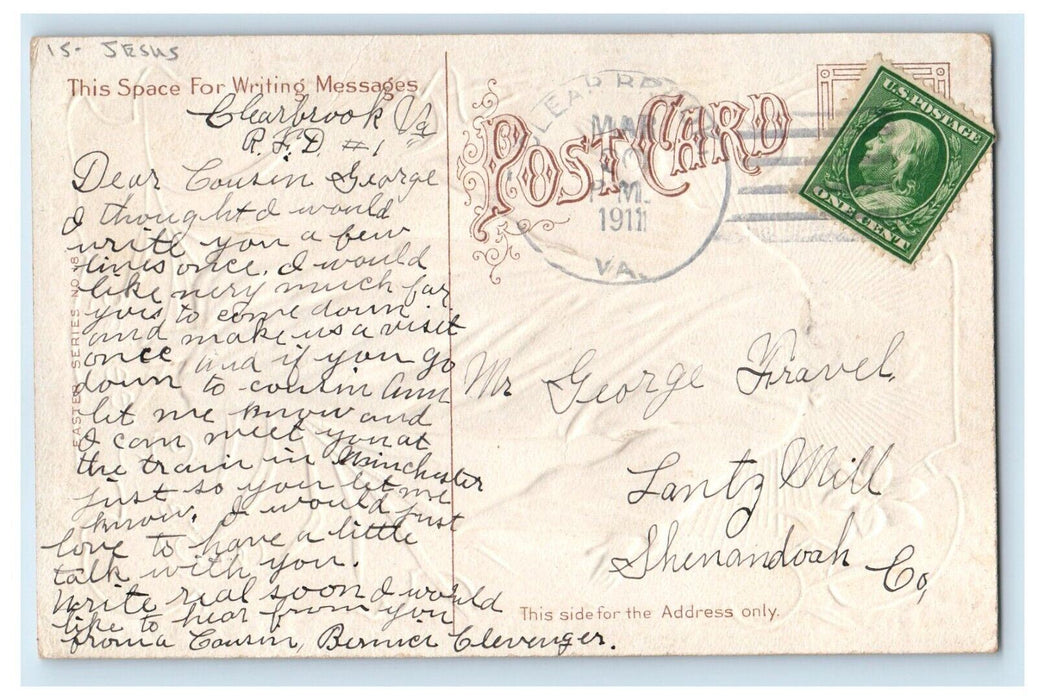 15- JESUS
This Space For Writing Messages
Clearbrook Va
R. F. D. #1
Dear Cousin George
I thought I would
write you a few
lines once. I would
like very much for
you to come down
and make us a visit
once and if you go
down to cousin Ann
let me know and
I can meet you at
the train in Winchester
just so you let me
know. I would just
love to have a little
talk with you.
Write real soon I would
like to hear from you
from a Cousin, Clevenger.
EASTER SERIES NO.
POST CARD
CLEAR BROOK
MAR
P.M.
1911
VA.
U.S. POSTAGE
ONE CENT
Mr George Fravel,
Lantz Mill
Shenandoah Co,
This side for the Address only.